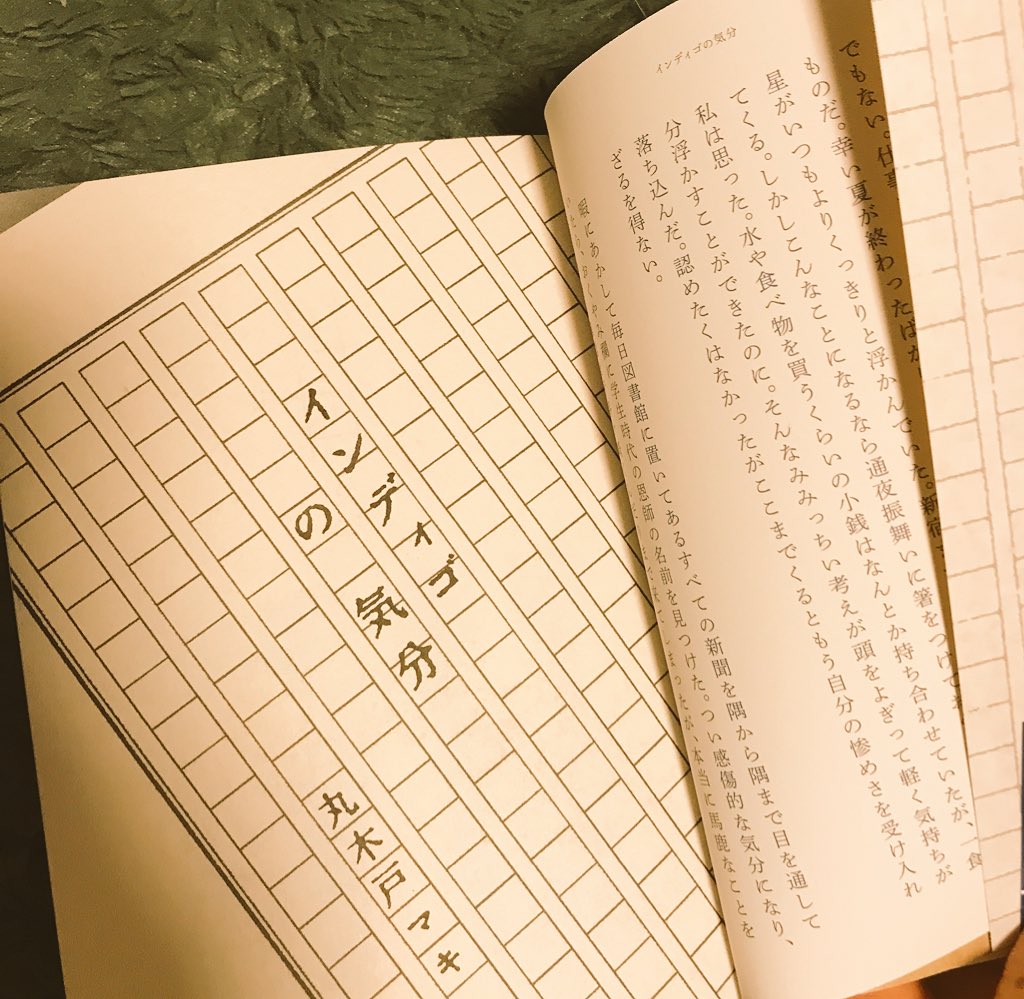 インディゴの気分
でもない。仕事
ものだ。幸い夏が終わったばか
星がいつもよりくっきりと浮かんでいた。新宿
てくる。しかしこんなことになるなら通夜振舞いに箸をつけてお
私は思った。水や食べ物を買うくらいの小銭はなんとか持ち合わせていたが、一食
分浮かすことができたのに。そんなみみっちい考えが頭をよぎって軽く気持ちが
落ち込んだ。認めたくはなかったがここまでくるともう自分の惨めさを受け入れ
ざるを得ない。
暇にあかして毎日図書館に置いてあるすべての新聞を隅から隅まで目を通して
いたら、おくやみ欄に学生時代の恩師の名前を見つけた。つい感傷的な気分になり、
しまったが、本当に馬鹿なことを
インディゴ
の気分
丸木戸マキ